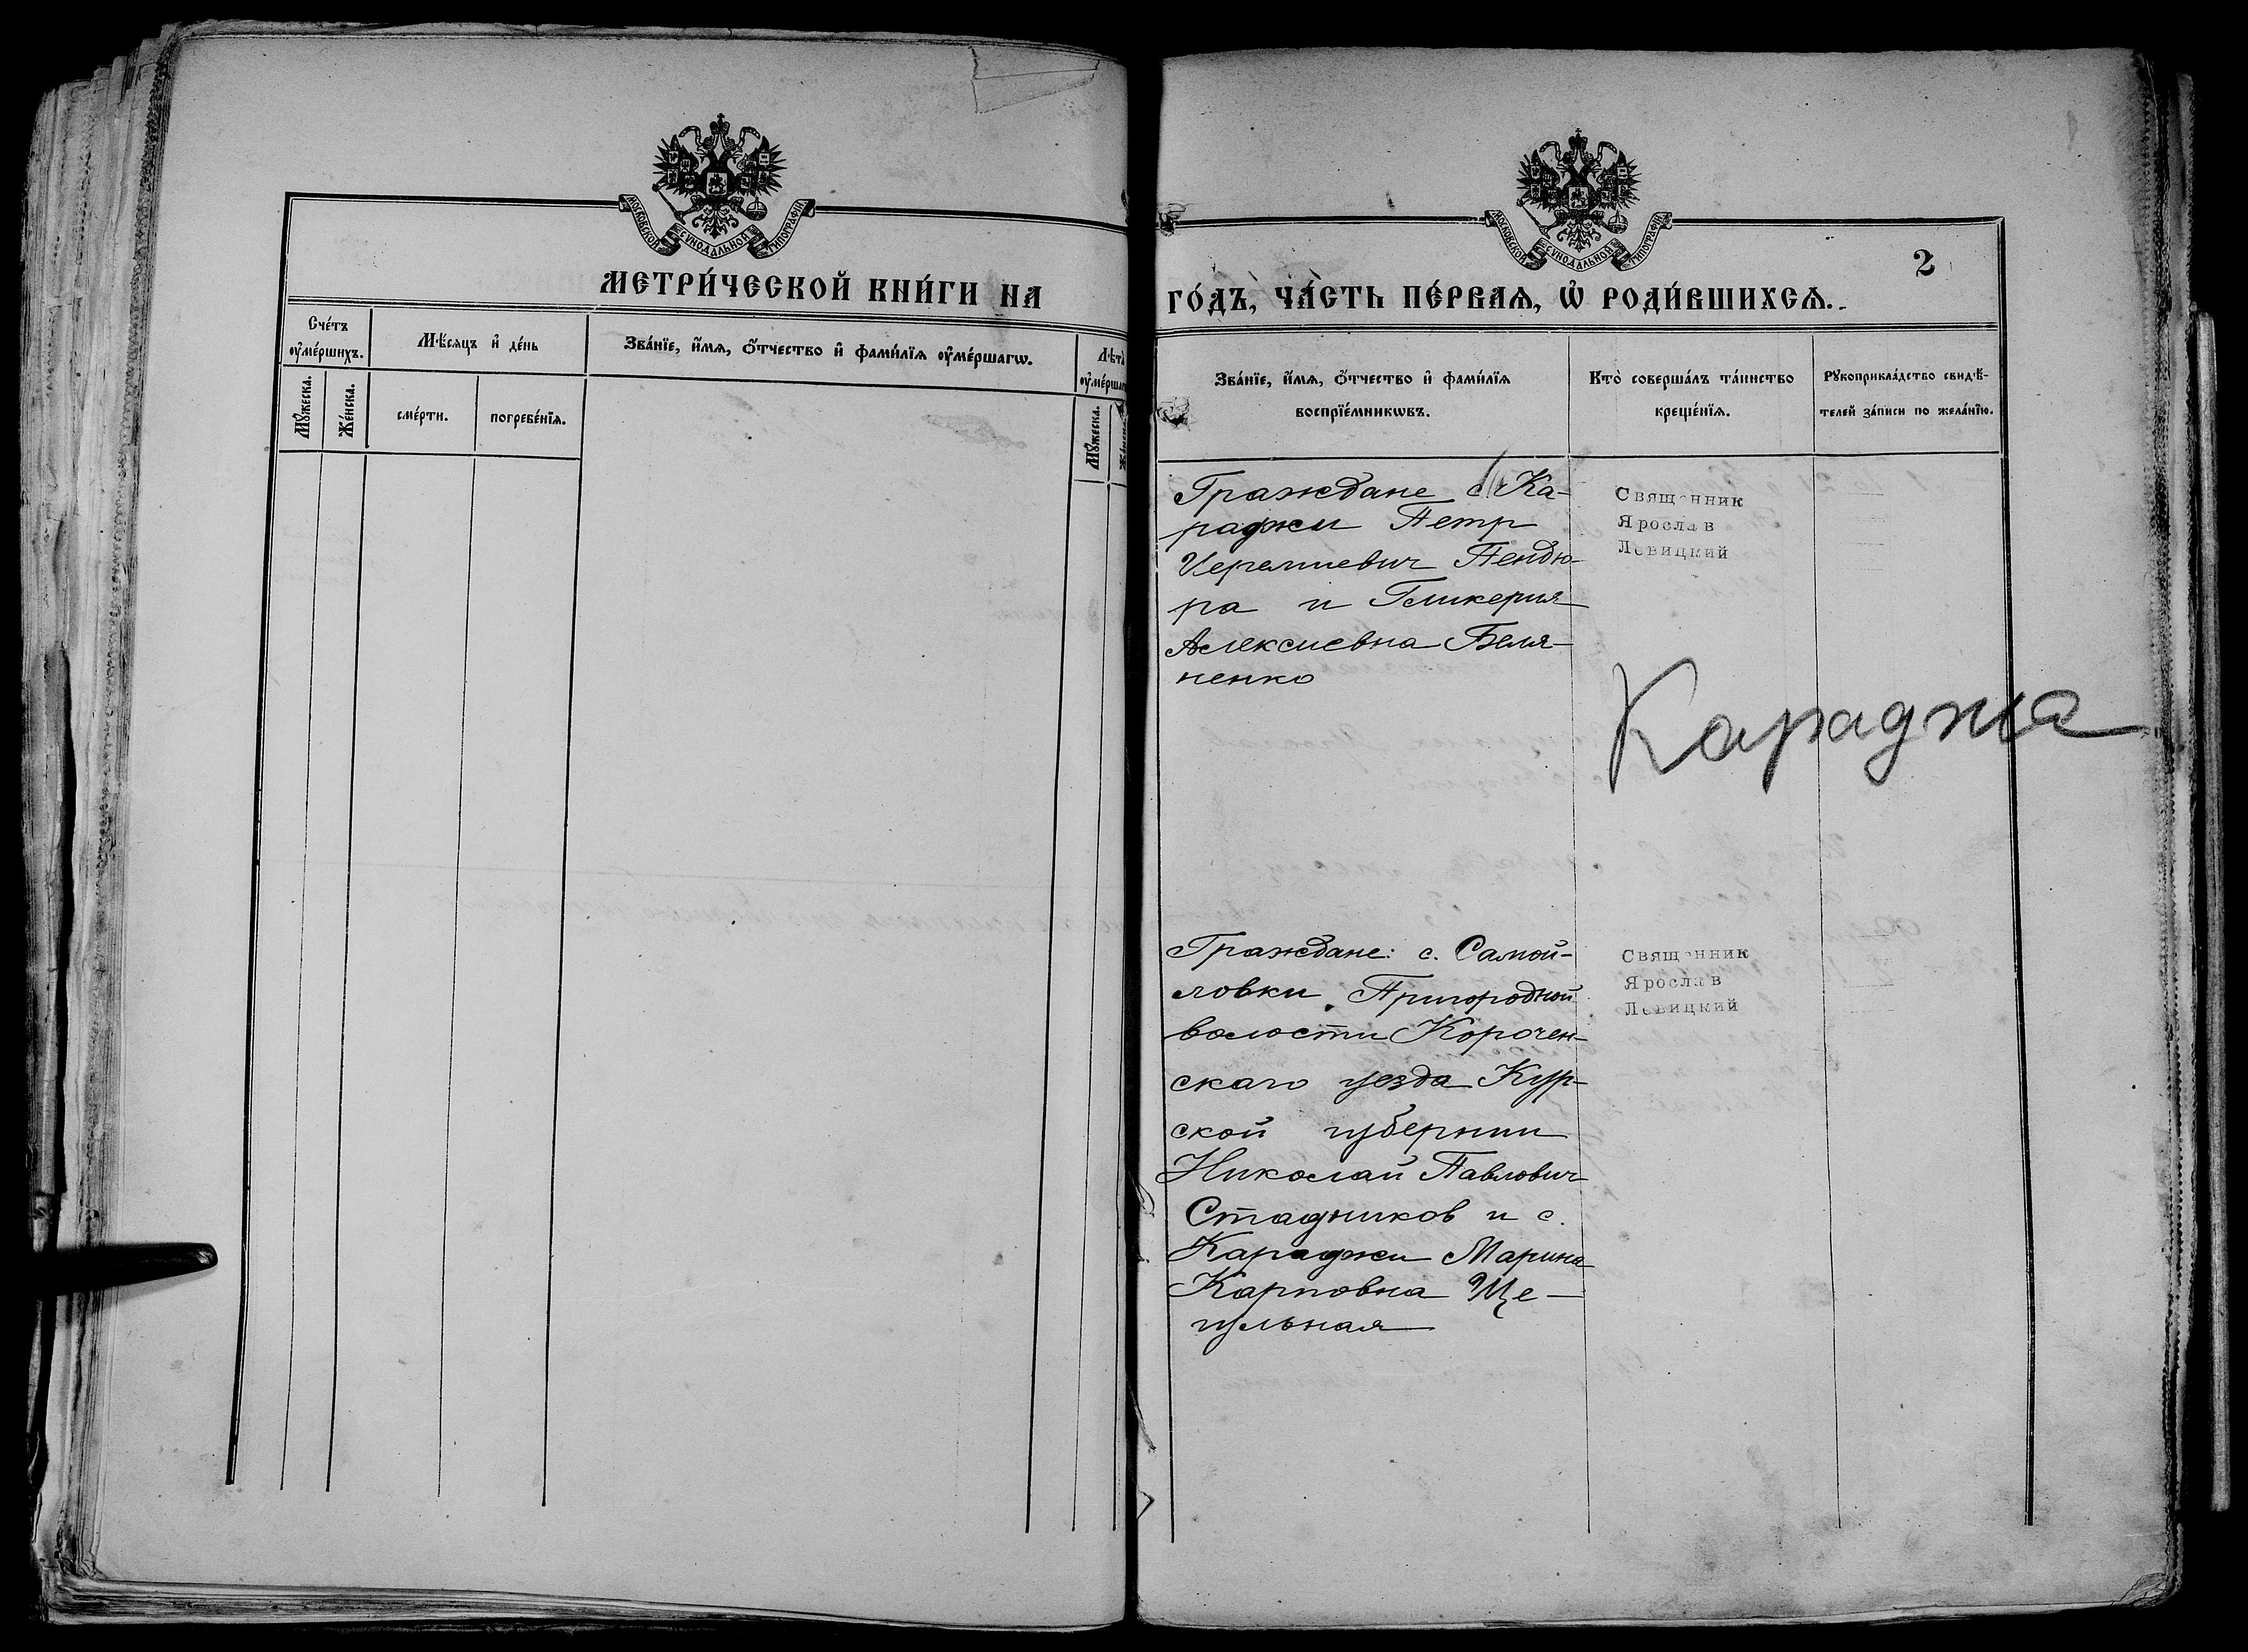 МОСКОВСКОЙ СУНОДАЛЬНОЙ ТИПОГРАФІИ
МЕТРИ́ЧЕСКОЙ КНИ́ГИ НА
Сче́тъ ᲂу҆ме́ршихъ.
Мꙋ́жеска.
Же́нска.
Мѣ́сяцъ и҆ де́нь
сме́рти.
погребе́нїя.
Зва́нїе, и҆́мя, ѻ҆́тчество и҆ фами́лїя ᲂу҆ме́ршагѡ.
Мꙋ́жеска.
МОСКОВСКОЙ СУНОДАЛЬНОЙ ТИПОГРАФІИ
2
ГО́ДЪ, ЧА́СТЬ ПЕ́РВАЯ, Ѡ҆ РОДИ́ВШИХСЯ.
Зва́нїе, и҆́мя, ѻ҆́тчество и҆ фами́лїя
воспрїе́мникѡвъ.
Кто̀ соверша́лъ та́инство
креще́нїя.
Рꙋкоприкла́дство свидѣ́-
телей за́писи по жела́нїю.
Граждане с. Ка-
раджи Петр
Иеремиевич Пендю-
ра и Гликерия
Алексиевна Беля-
ненко
Священник
Ярослав
Левицкий
Караджа
Граждане: с. Самой-
ловки Пригородной
волости Корочен-
скаго уезда Кур-
ской губернии
Николай Павлович
Стадников и с.
Караджи Марина
Карповна Ще-
гульная
Священник
Ярослав
Левицкий